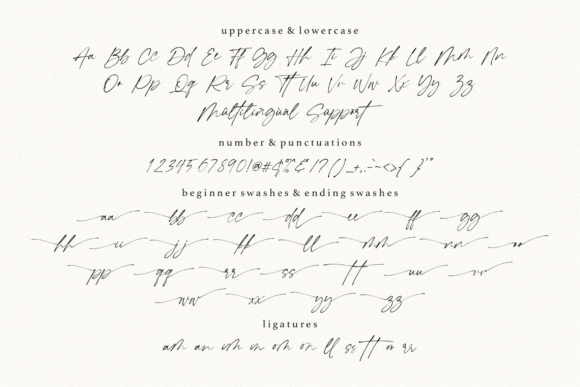 uppercase & lowercase
Aa Bb Cc Dd Ee Ff Gg Hh Ii Jj Kk Ll Mm Nn
Oo Pp Qq Rr Ss Tt Uu Vv Ww Xx Yy Zz
Multilingual Support
number & punctuations
1234567890!@#$%^&*/?()_+,.:~-<>{ }"”
beginner swashes & ending swashes
aa bb cc dd ee ff gg
hh ii jj kk ll mm nn oo
pp qq rr ss tt uu vv
ww xx yy zz
ligatures
am an vh in om on ll ss tt oo rr